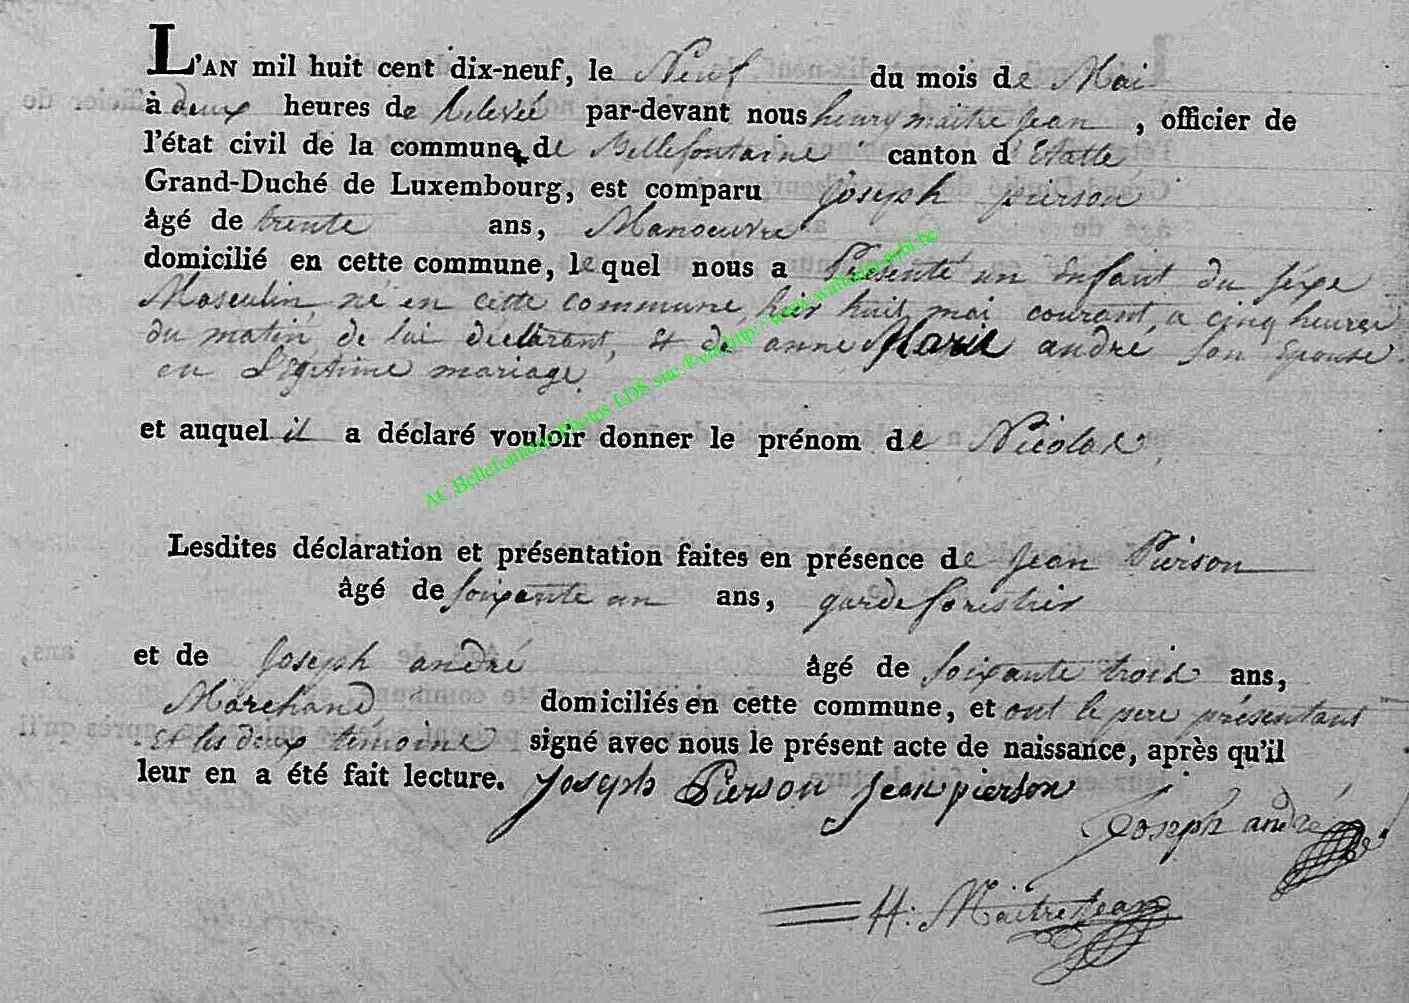 L'AN mil huit cent dix-neuf, le Neuf du mois de Mai
à deux heures de Relevé par-devant nous henry maitre jean, officier de
l'état civil de la commune de Bellefontaine canton d'Etalle
Grand-Duché de Luxembourg, est comparu Joseph pierson
âgé de trente ans, Manoeuvre
domicilié en cette commune, lequel nous a Présenté un Enfant du sexe
Masculin, né en cette commune, hier huit mai courant, a cinq heures
du matin, de lui déclarant, Et de anne Marie andré son Epouse
en Légitime mariage.
et auquel il a déclaré vouloir donner le prénom de Nicolas
Lesdites déclaration et présentation faites en présence de Jean Pierson
âgé de soixante un ans, garde forestier
et de Joseph andré âgé de soixante trois ans,
Marchand domiciliés en cette commune, et ont le pere présentant
Et les deux temoins signé avec nous le présent acte de naissance, après qu'il
leur en a été fait lecture. Joseph Pierson Jean pierson
Joseph andré
H: Maitrejean
AC Bellefontaine Photos LDS sur